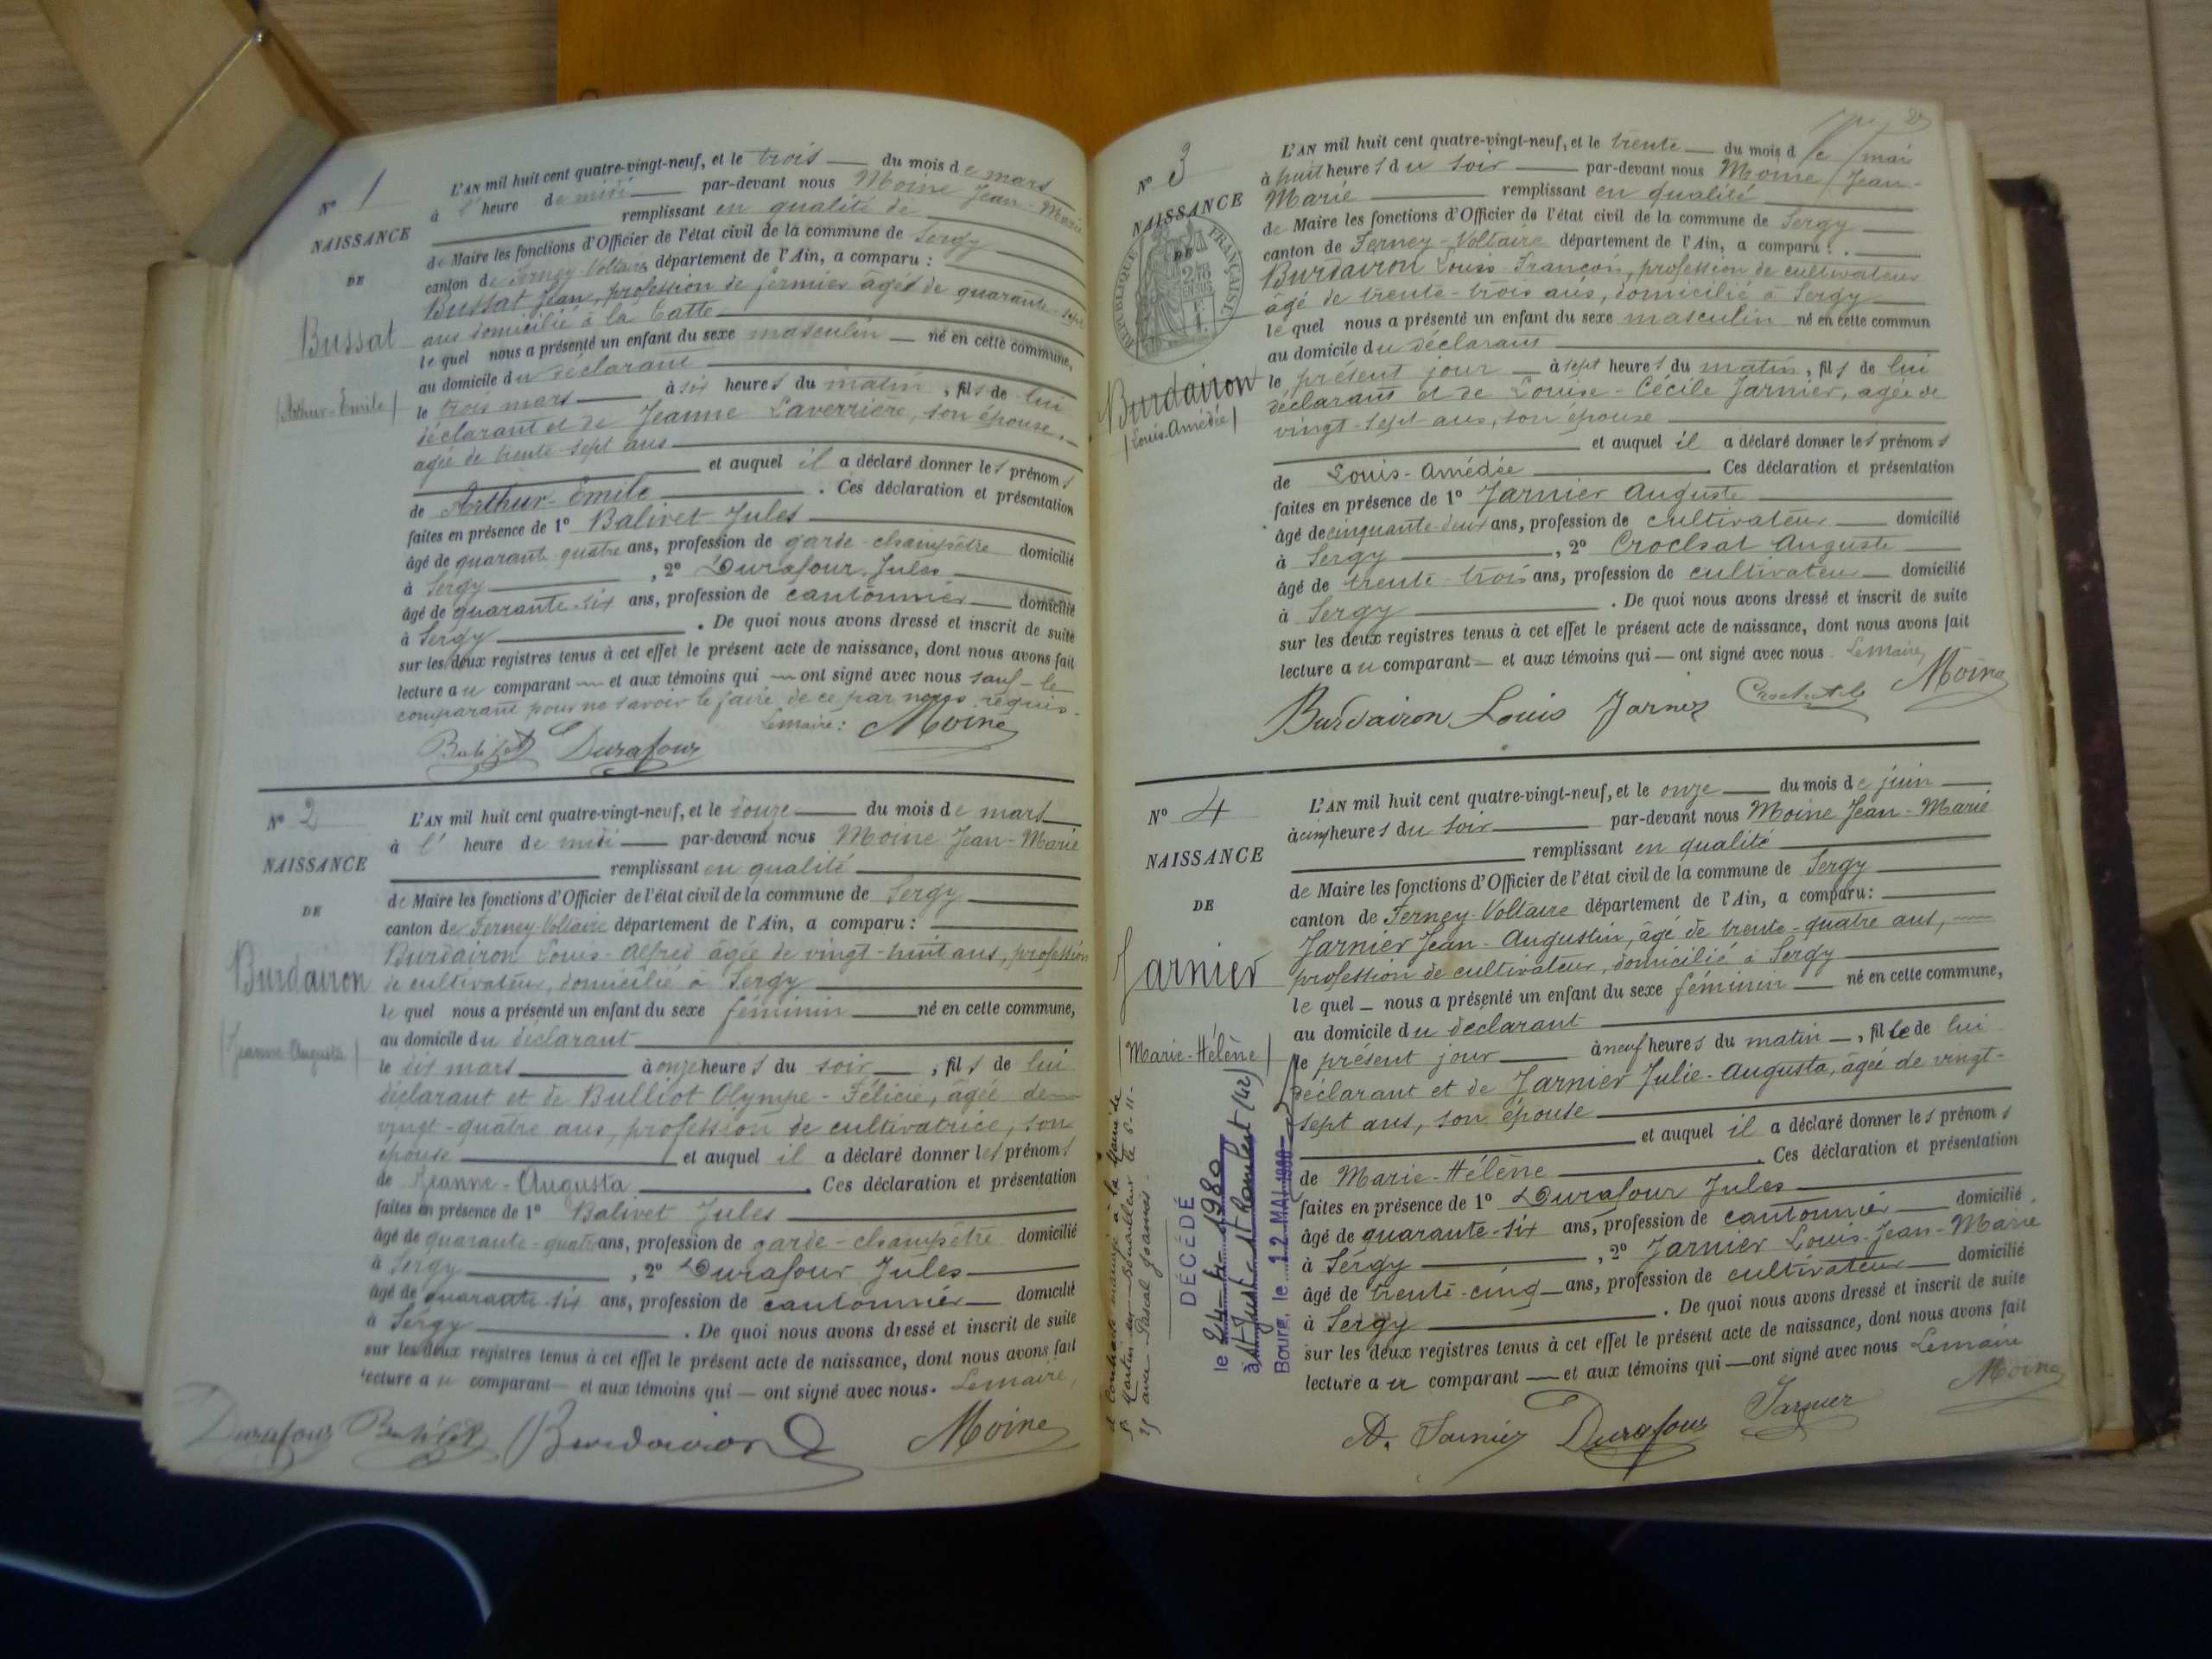 N° 1
NAISSANCE
DE
Bussat
(Arthur-Emile)
L'AN mil huit cent quatre-vingt-neuf, et le trois du mois de mars
à l' heure de midi par-devant nous Moine Jean-Marie
remplissant en qualité de
de Maire les fonctions d'Officier de l'état civil de la commune de Sergy
canton de Ferney-Voltaire département de l'Ain, a comparu :
Bussat Jean, profession de fermier âgé de quarante-sept
ans domicilié à la
le quel nous a présenté un enfant du sexe masculin né en cette commune,
au domicile du déclarant
le trois mars à six heures du matin, fils de lui
déclarant et de Jeanne Laverrière, son épouse,
agée de trente-sept ans
et auquel il a déclaré donner les prénoms
de Arthur-Emile. Ces déclaration et présentation
faites en présence de 1° Balivet Jules
âgé de quarante quatre ans, profession de garde-champêtre domicilié
à Sergy, 2° Durafour Jules
âgé de quarante-six ans, profession de cantonnier domicilié
à Sergy. De quoi nous avons dressé et inscrit de suite
sur les deux registres tenus à cet effet le présent acte de naissance, dont nous avons fait
lecture au comparant et aux témoins qui ont signé avec nous sauf le
comparant pour ne savoir le faire de ce par nous requis.
Le maire :
Moine
Balivet Durafour
N° 2
NAISSANCE
DE
Burdairon
(Jeanne Augusta)
L'AN mil huit cent quatre-vingt-neuf, et le douze du mois de mars
à l' heure de midi par-devant nous Moine Jean-Marie
remplissant en qualité
de Maire les fonctions d'Officier de l'état civil de la commune de Sergy
canton de Ferney-Voltaire département de l'Ain, a comparu :
Burdairon Louis-Alfred âgée de vingt-huit ans, profession
de cultivateur, domicilié à Sergy
le quel nous a présenté un enfant du sexe féminin né en cette commune,
au domicile du déclarant
le dix mars à onze heures du soir, fils de lui
déclarant et de Bulliot Olympe-Félicie, âgée de
vingt-quatre ans, profession de cultivatrice, son
épouse et auquel il a déclaré donner les prénoms
de Jeanne-Augusta. Ces déclaration et présentation
faites en présence de 1° Balivet Jules
âgé de quarante-quatre ans, profession de garde-champêtre domicilié
à Sergy, 2° Durafour Jules
âgé de quarante-six ans, profession de cantonnier domicilié
à Sergy. De quoi nous avons dressé et inscrit de suite
sur les deux registres tenus à cet effet le présent acte de naissance, dont nous avons fait
lecture au comparant et aux témoins qui ont signé avec nous. Le maire,
Durafour Balivet Burdairon Moine
N° 3
NAISSANCE
DE
RÉPUBLIQUE FRANÇAISE
Burdairon
(Louis-Amédée)
L'AN mil huit cent quatre-vingt-neuf, et le trente du mois de mai
à huit heures du soir par-devant nous Moine Jean-
Marie remplissant en qualité
de Maire les fonctions d'Officier de l'état civil de la commune de Sergy
canton de Ferney-Voltaire département de l'Ain, a comparu :
Burdairon Louis François, profession de cultivateur
âgé de trente-trois ans, domicilié à Sergy
le quel nous a présenté un enfant du sexe masculin né en cette commun
au domicile du déclarant
le présent jour à sept heures du matin, fils de lui
déclarant et de Louise-Cécile Jarnier, agée de
vingt-sept ans, son épouse
et auquel il a déclaré donner les prénoms
de Louis-Amédée. Ces déclaration et présentation
faites en présence de 1° Jarnier Auguste
âgé de cinquante-deux ans, profession de cultivateur domicilié
à Sergy, 2° Crochat Auguste
âgé de trente-trois ans, profession de cultivateur domicilié
à Sergy. De quoi nous avons dressé et inscrit de suite
sur les deux registres tenus à cet effet le présent acte de naissance, dont nous avons fait
lecture au comparant et aux témoins qui ont signé avec nous. Le maire,
Burdairon Louis Jarnier Moine
N° 4
NAISSANCE
DE
Jarnier
(Marie-Hélène)
L'AN mil huit cent quatre-vingt-neuf, et le onze du mois de juin
à cinq heures du soir par-devant nous Moine Jean-Marie
remplissant en qualité
de Maire les fonctions d'Officier de l'état civil de la commune de Sergy
canton de Ferney-Voltaire département de l'Ain, a comparu :
Jarnier Jean-Augustin, âgé de trente-quatre ans,
profession de cultivateur, domicilié à Sergy
le quel nous a présenté un enfant du sexe féminin né en cette commune,
au domicile du déclarant
le présent jour à neuf heures du matin, fille de lui
déclarant et de Jarnier Julie-Augusta, âgée de vingt-
sept ans, son épouse
et auquel il a déclaré donner les prénoms
de Marie-Hélène. Ces déclaration et présentation
faites en présence de 1° Durafour Jules
âgé de quarante-six ans, profession de cantonnier domicilié
à Sergy, 2° Jarnier Louis-Jean-Marie
âgé de trente-cinq ans, profession de cultivateur domicilié
à Sergy. De quoi nous avons dressé et inscrit de suite
sur les deux registres tenus à cet effet le présent acte de naissance, dont nous avons fait
lecture au comparant et aux témoins qui ont signé avec nous Le maire
A. Jarnier Durafour Jarnier Moine
mariage à la Mairie de
avec Pascal Joannès
DÉCÉDÉ
le 24-4-1980
à St Just-St Rambert (42)
Bourg, le 12 MAI 1980